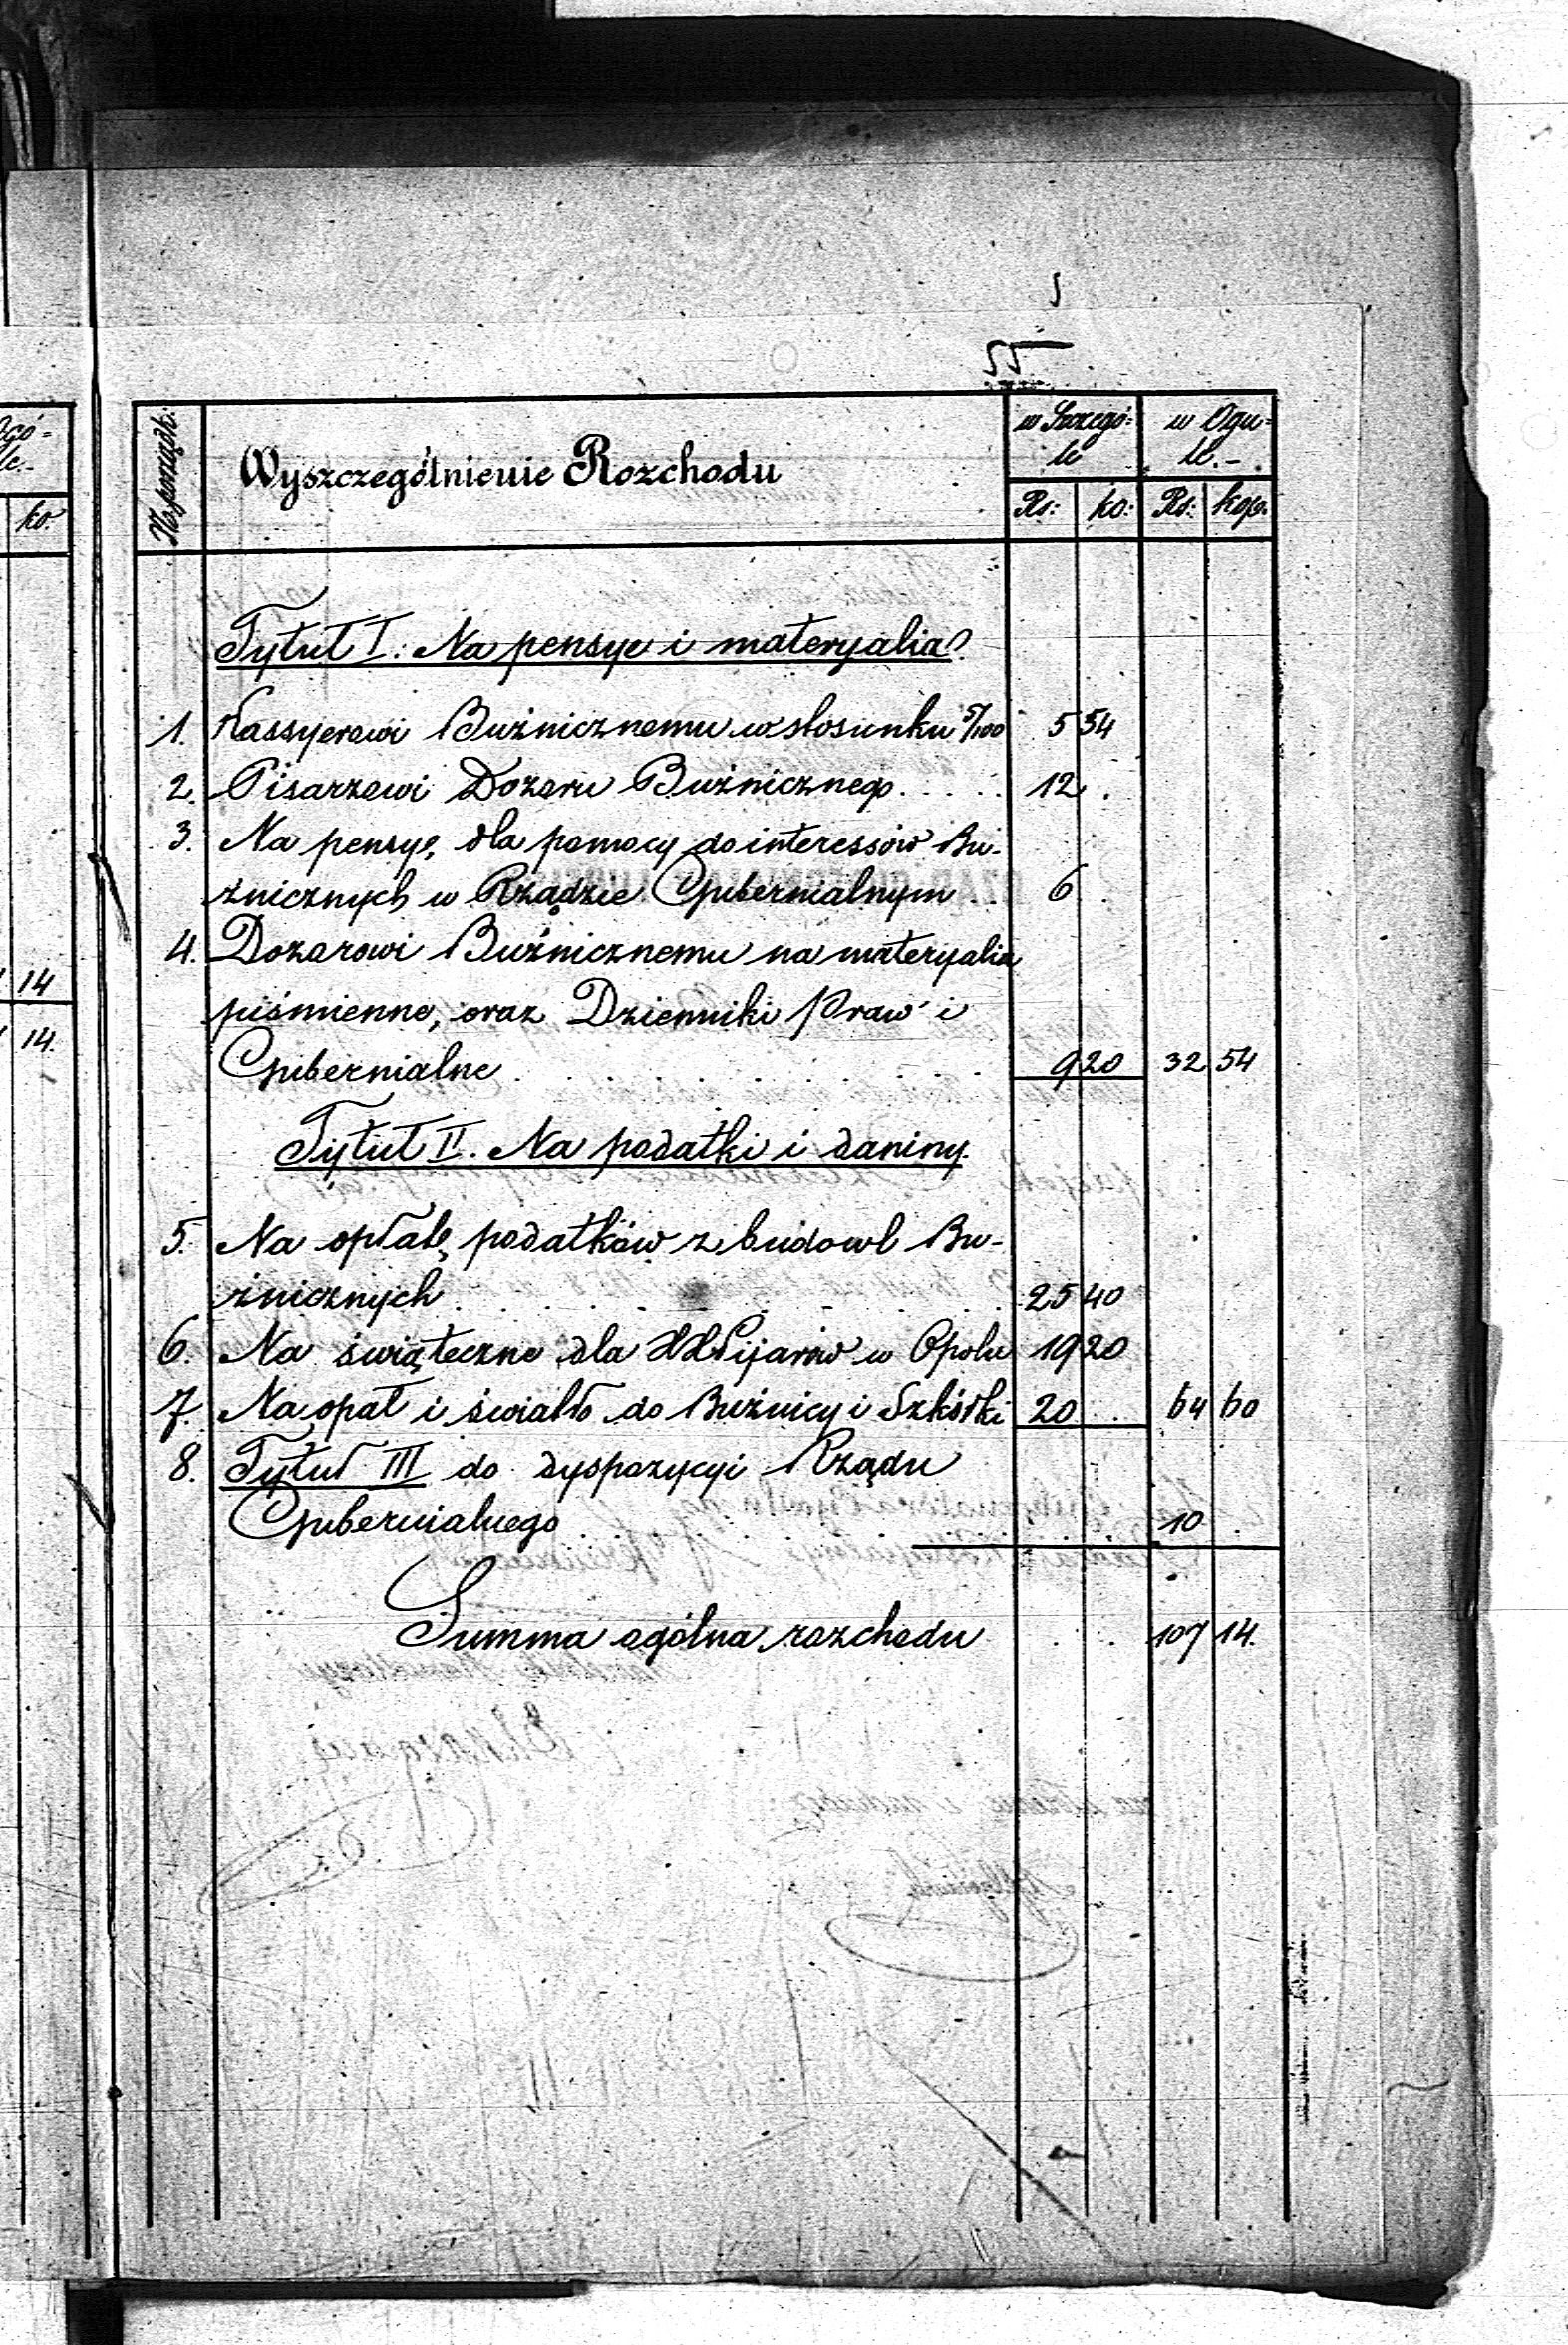 55
No porządk:
Wyszczególnienie Rozchodu
w Szczegó-
le
w Ogu-
le.-
Rs: ko: Rs: kop.
Tytuł I. Na pensye i materyalia
1. Kassyerowi Bużnicznemu w stosunku 5/100 5 54
2. Pisarzowi Dozoru Bużnicznego..... 12 .
3. Na pensyę, dla pomocy do interessów Bu-
żnicznych w Rządzie Gubernialnym .. 6 .
4. Dozorowi Bużnicznemu na materyalia
piśmienne, oraz Dzienniki Praw i
Gubernialne . . . . . . . . . 9 20 32 54
Tytuł II. Na podatki i daniny.
5. Na opłatę podatków z budowl Bu-
żnicznych . . . . . . . . . 25 40
6. Na świąteczne dla XX Pijarów w Opolu 19 20
7. Na opał i światło do Bużnicy i Szkółki 20 .. 64 60
8. Tytuł III do dyspozycyi Rządu
Gubernialnego . . . 10 .
Summa ogólna rozchodu . . . 107 14.
ko.
14
14.